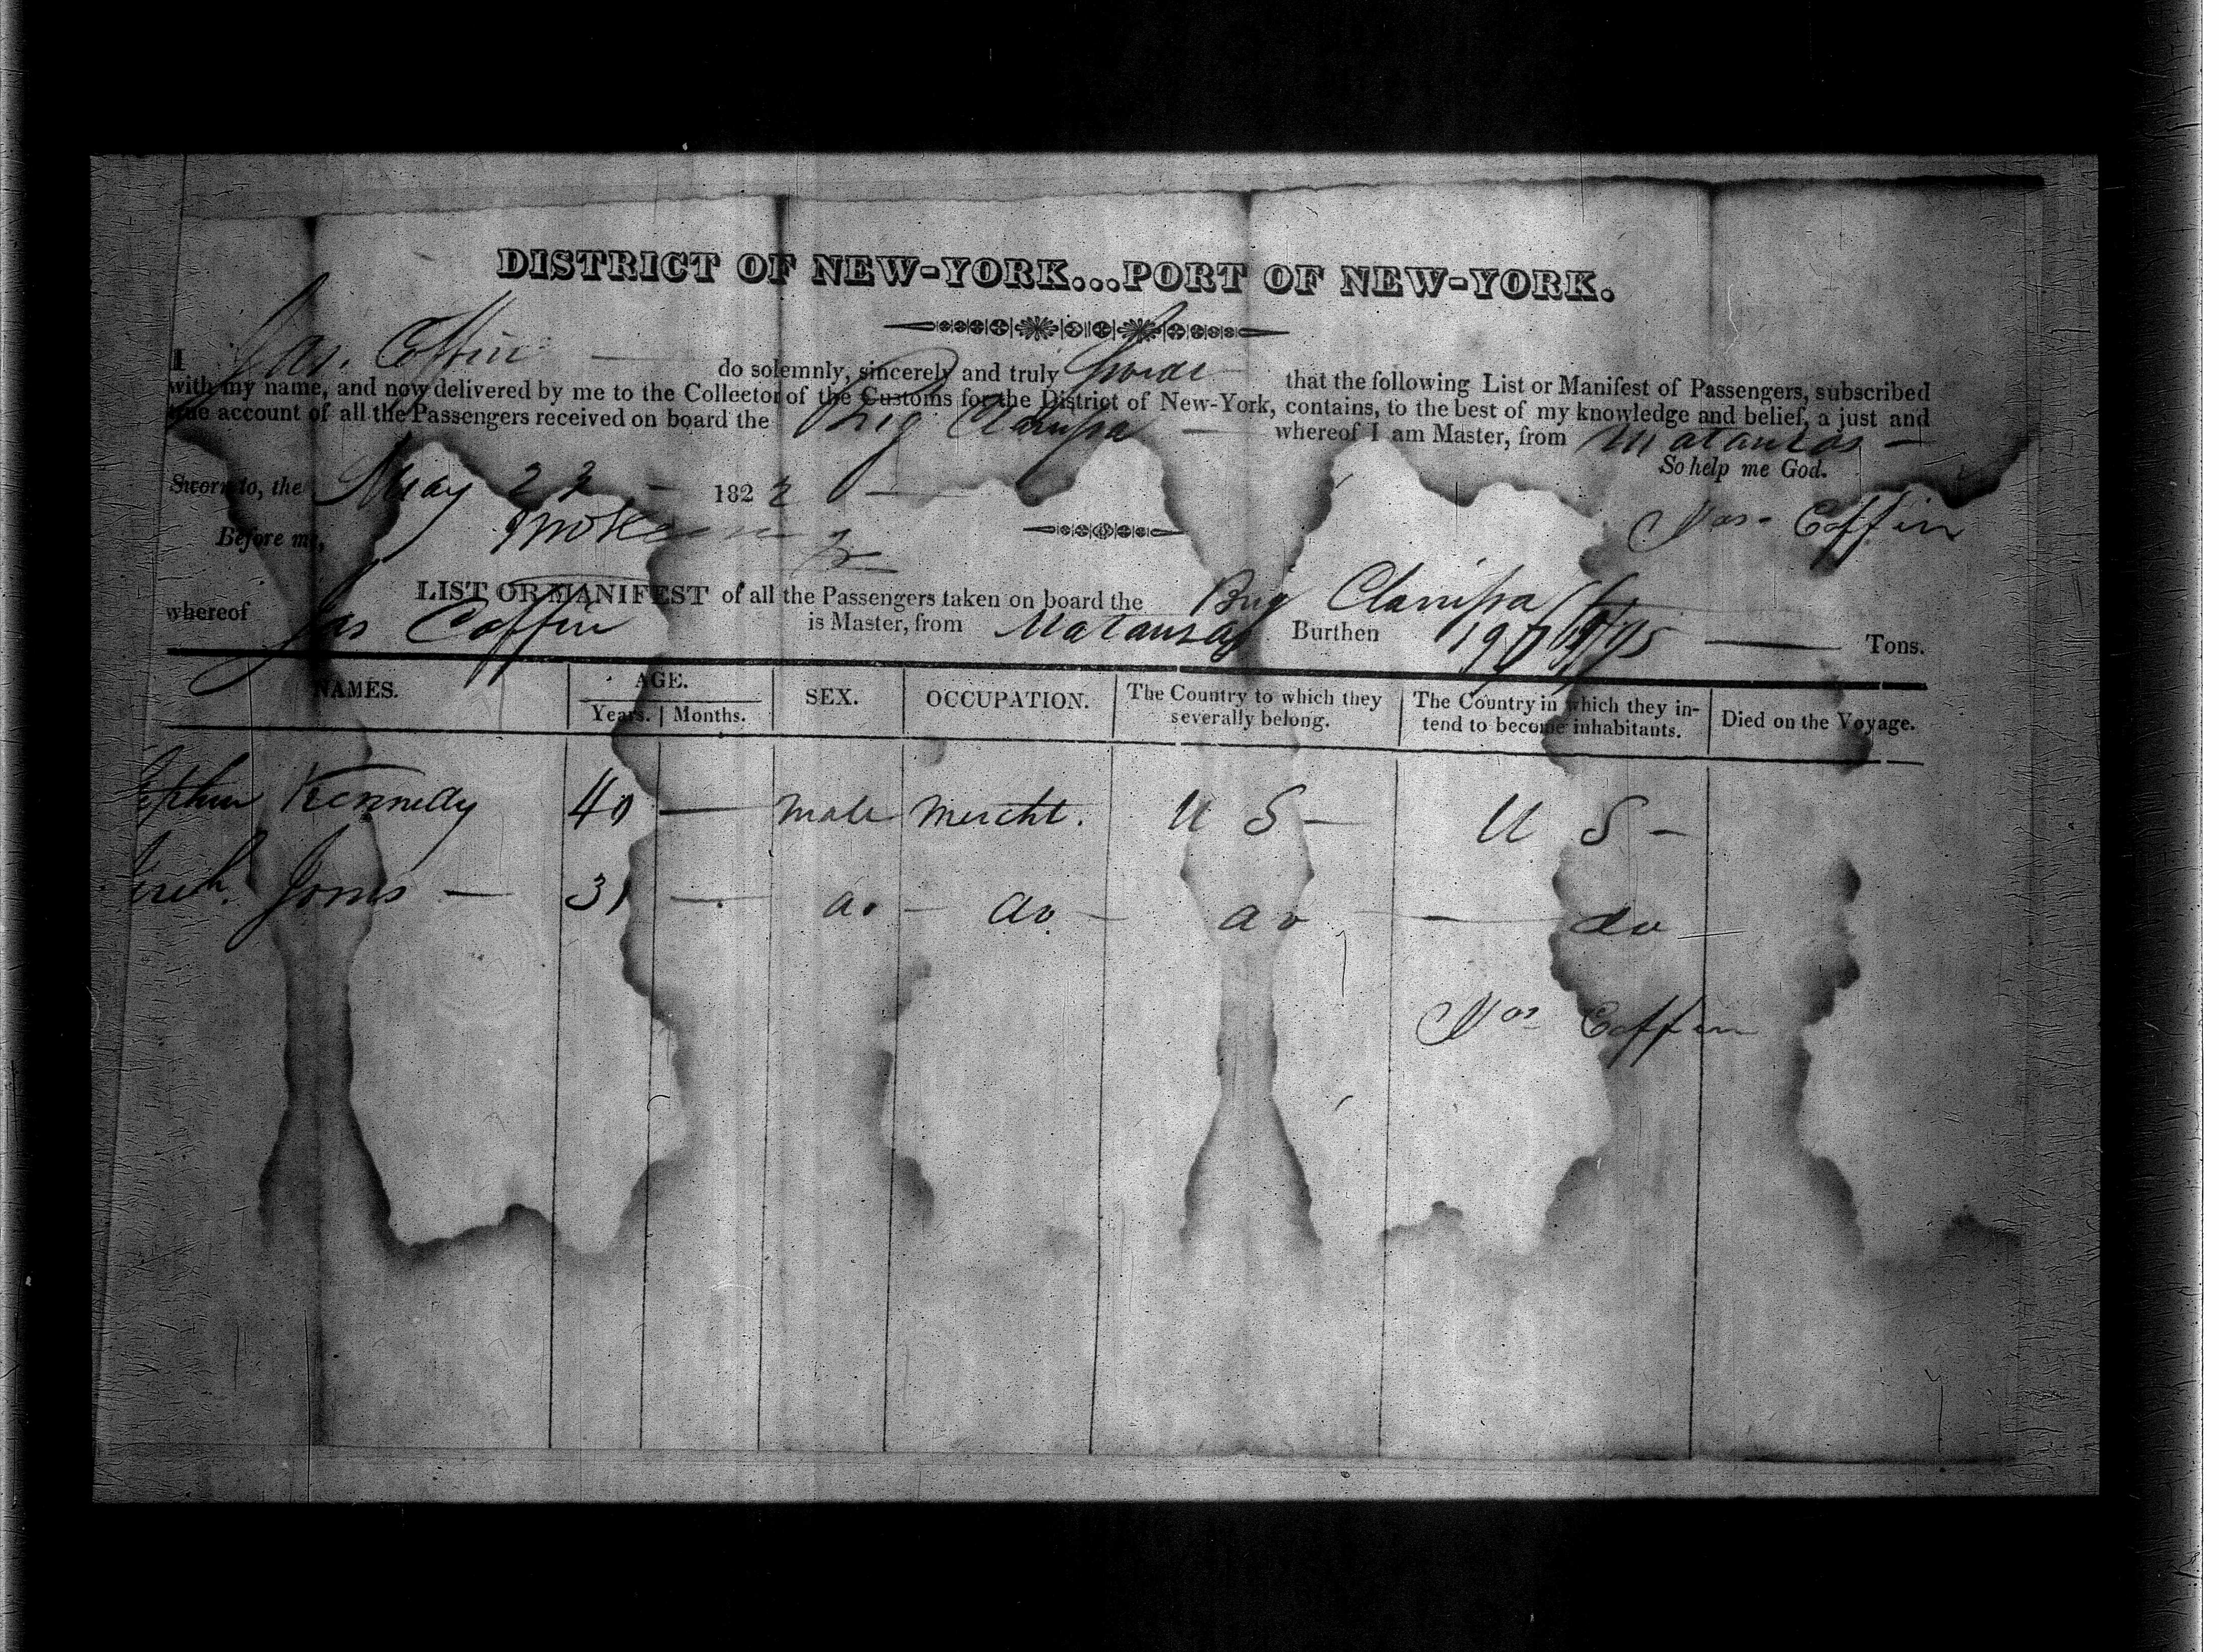 DISTRICT OF NEW-YORK...PORT OF NEW-YORK.
I Jas. Coffin do solemnly, sincerely and truly that the following List or Manifest of Passengers, subscribed
with my name, and now delivered by me to the Collector of the Customs for the District of New-York, contains, to the best of my knowledge and belief, a just and
true account of all the Passengers received on board the Brig Clarissa whereof I am Master, from Matanzas —
So help me God.
Sworn to, the May 22 — 1822
Jas. Coffin
Before me,
LIST OR MANIFEST of all the Passengers taken on board the Brig Clarissa
whereof Jas Coffin is Master, from Matanzas Burthen Tons.
NAMES. AGE. SEX. OCCUPATION. The Country to which they severally belong. The Country in which they in-tend to become inhabitants. Died on the Voyage.
Years. | Months.
Kennedy 40 — male mercht. U S — U S —
Jones — 31 — do — do — do — do
Jas Coffin